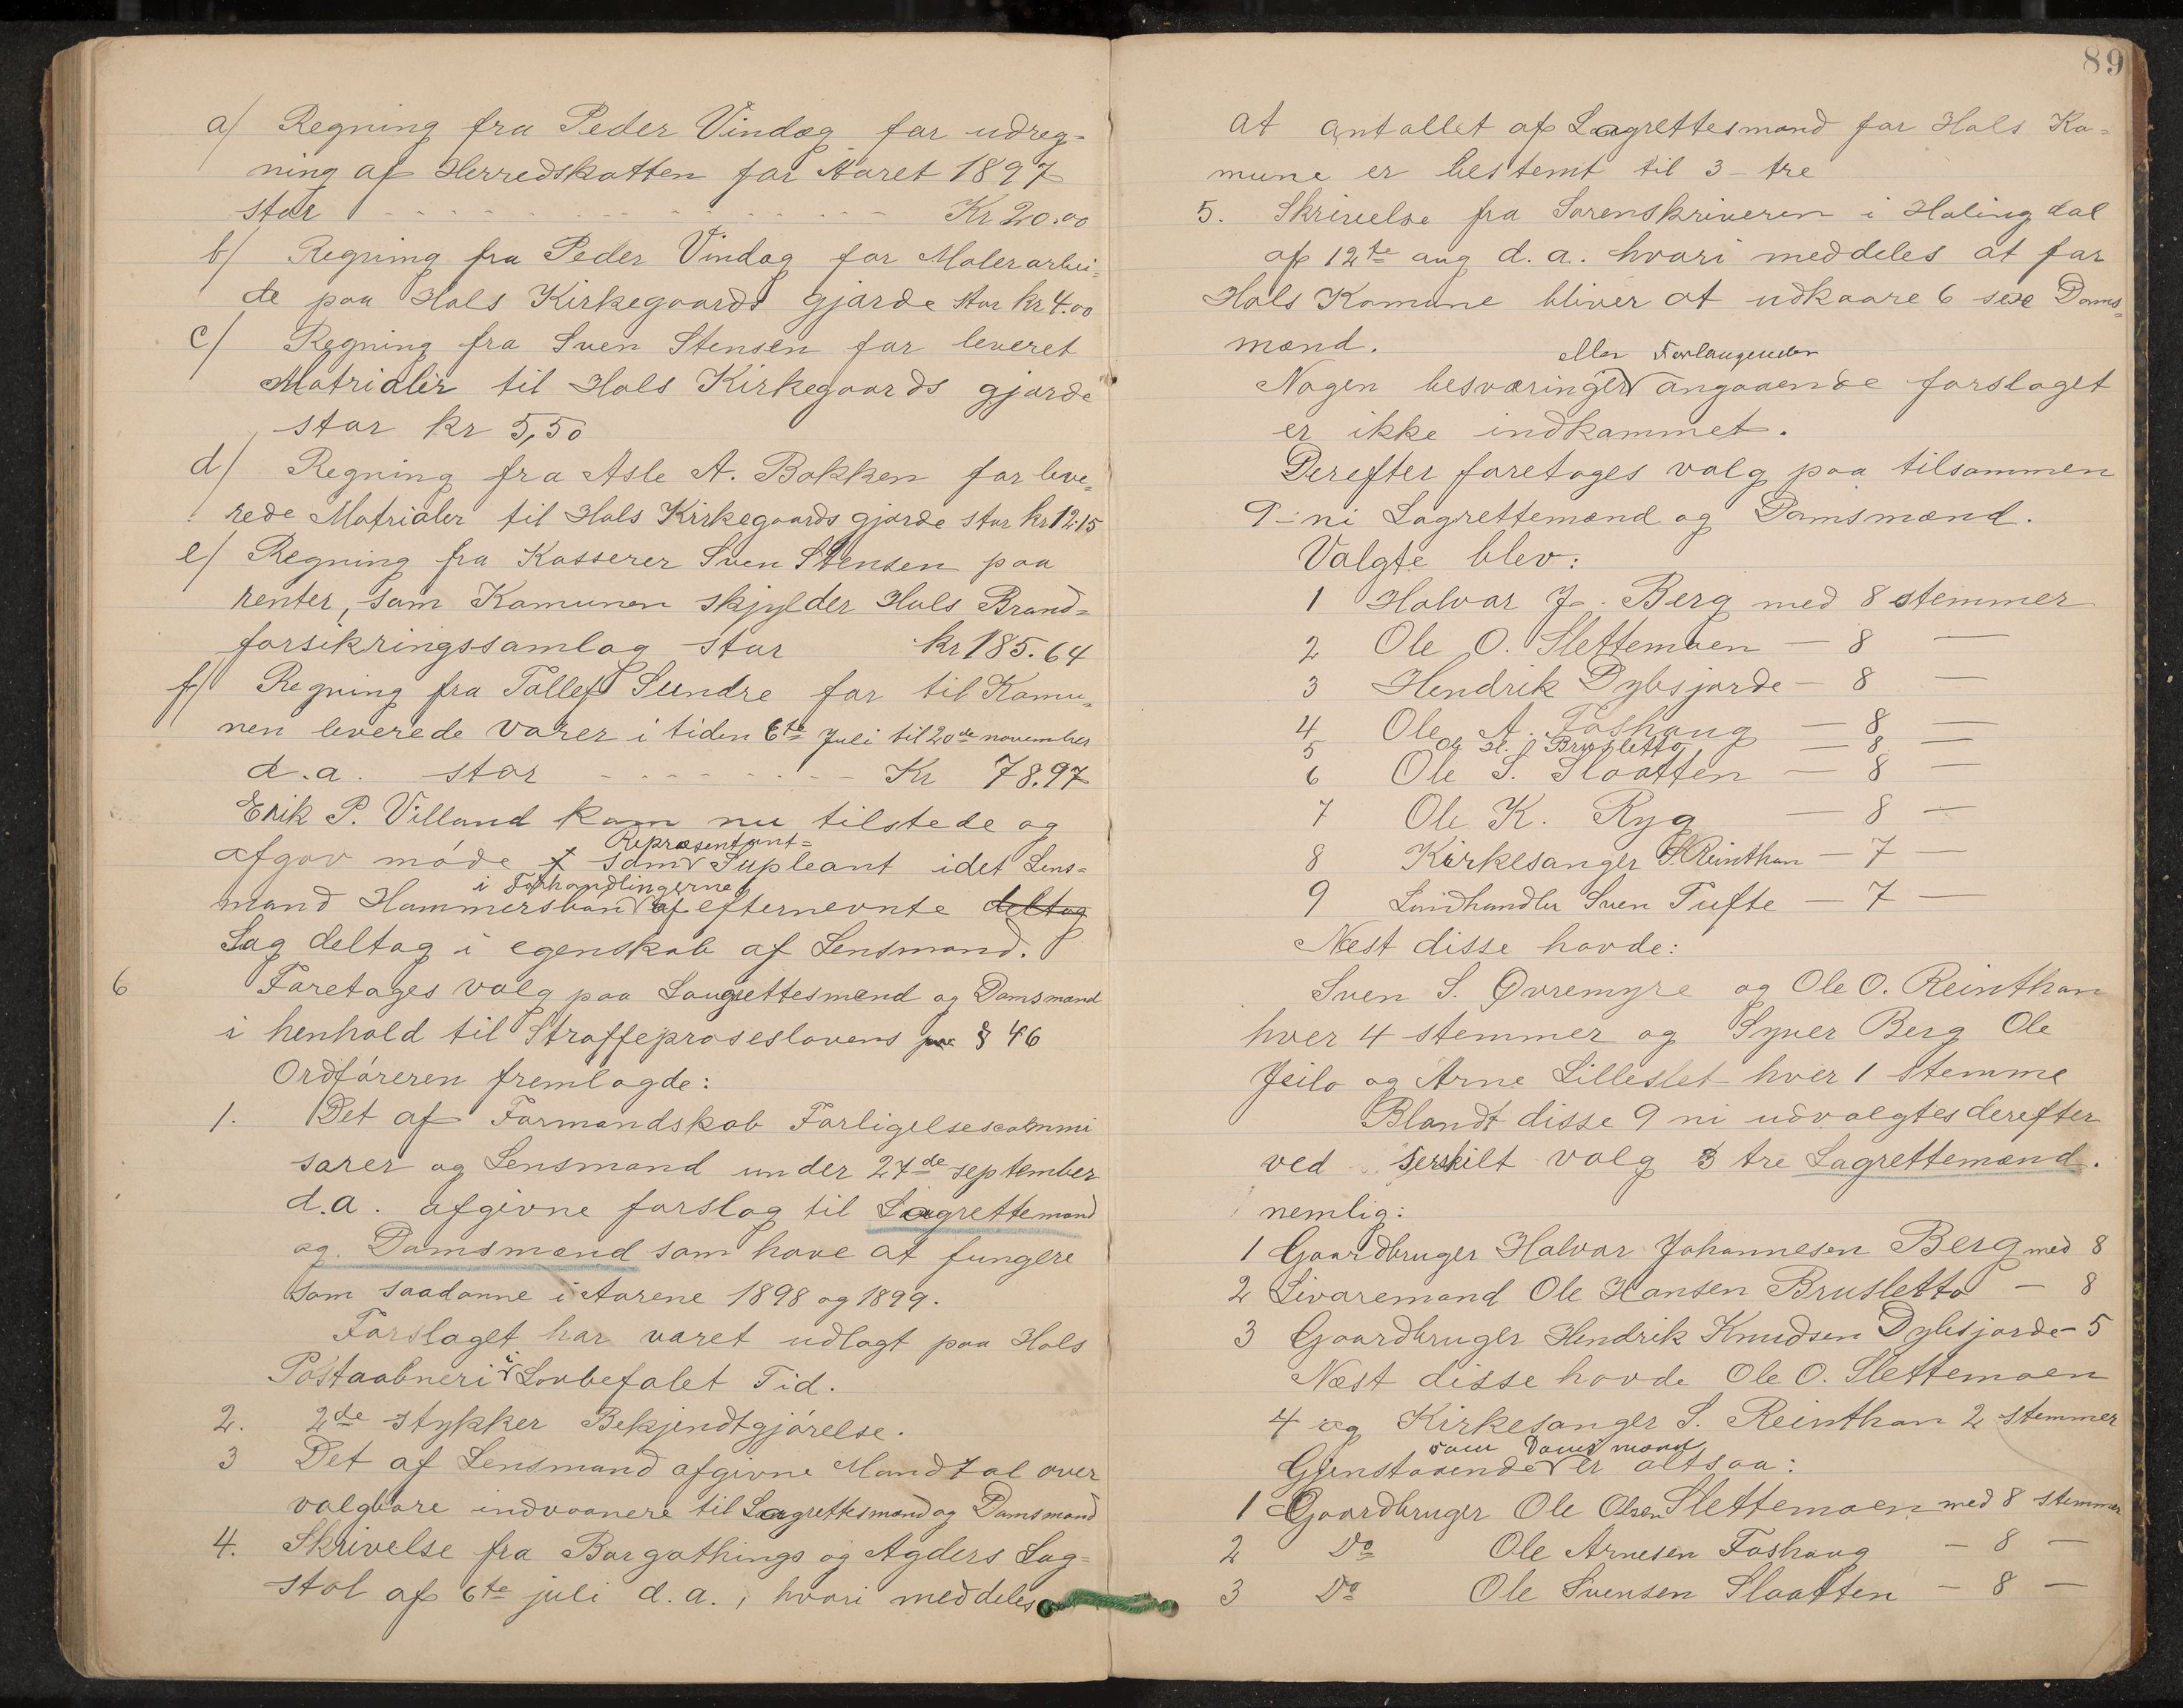 a/ Regning fra Peder Vindæg for udreg-
ning af Herredskatten for Aaret 1897
stor - - - - - - Kr 20.00
b/ Regning fra Peder Vindæg for Malerarbei-
de paa Hols Kirkegaards gjærde stor kr 4.00
c/ Regning fra Sven Stensen for leveret
Matrialer til Hols Kirkegaards gjærde
stor kr 5,50
d/ Regning fra Asle A. Bakken for leve-
rede Matrialer til Hols Kirkegaards gjærde stor kr 12.15
e/ Regning fra Kasserer Sven Stensen paa
renter, som Komunen skjylder Hols Brand-
forsikringssamlag stor kr 185.64
f/ Regning fra Tollef Sundre for til Komu-
nen leverede varer i tiden 6te Juli til 20de november
d.a. stor - - - - - Kr 78.97
Erik P. Villand kom nu tilstede og
Repræsentant-
afgav møde som Supleant idet Lens-
i Forhandlingerne
mand Hammersbøn af efternevnte deltog
Sag deltog i egenskab af Lensmand.
6 Foretages valg paa Laugrettesmænd og Domsmænd
i henhold til Straffeproseslovens § 46
Ordføreren fremlagde:
1. Det af Formandskab Forligelsescommi
særer og Lensmand under 27de september
d.a. afgivne forslag til Lagrettemænd
og Domsmænd som have at fungere
som saadanne i Aarene 1898 og 1899.
Forslaget har været udlagt paa Hols
Postaabneri i Lovbefalet Tid.
2. 2de stykker Bekjendtgjørelse.
3 Det af Lensmand afgivne Mandtal over
valgbare indvaanere til Lagrettesmænd og Domsmænd
4. Skrivelse fra Borgathings og Agders Lag-
stol af 6te juli d.a., hvori meddeles
89
at Antallet af Lagrettesmænd for Hols Ko-
mune er bestemt til 3 - tre
5. Skrivelse fra Sorenskriveren i Halingdal
af 12te aug d.a. hvori meddeles at for
Hols Komune bliver at udkaare 6 sex Doms-
mænd.
eller Forlangender
Nogen besværinger angaaende forslaget
er ikke indkommet.
Derefter foretages valg paa tilsammen
9 - ni Lagrettemænd og Domsmænd.
Valgte blev:
1 Halvor J. Berg med 8 stemmer
2 Ole O. Slettemoen — 8 —
3 Hendrik Dybsjorde — 8 —
4 Ole A. Foshaug — 8 —
5 Ole H. Brusletto — 8 —
6 Ole S. Slaatten — 8 —
7 Ole K. Ryg — 8 —
8 Kirkesanger S. Reinthon — 7 —
9 Landhandler Sven Tufte — 7 —
Næst disse havde:
Sven S. Øvremyre og Ole O. Reinthon
hver 4 stemmer og Syver Berg Ole
Jeilo og Arne Lilleslet hver 1 stemme
Blandt disse 9 ni udvalgtes derefter
ved serskilt valg 3 tre Lagrettemænd.
nemlig:
1 Gaardbruger Halvor Johannesen Berg med 8
2 Livaremand Ole Hansen Brusletto — 8
3 Gaardbruger Hendrik Knudsen Dybsjorde — 5
Næst disse havde Ole O. Slettemoen
4 og Kirkesanger S. Reinthon 2 stemmer
som Domsmænd
Gjenstaaende er altsaa:
1 Gaardbruger Ole Olsen Slettemoen med 8 stemmer
2 Do Ole Arnesen Foshaug — 8 —
3 Do Ole Svensen Slaatten — 8 —